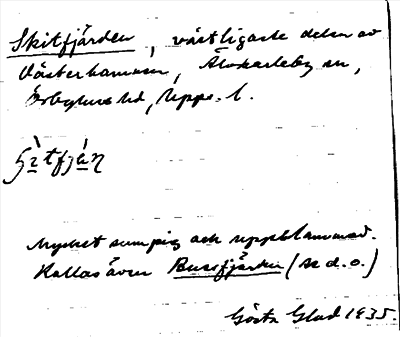 Skitfjärden, västligaste delen av
Västerhamnen, Älvkarleby sn,
Örbyhus hd, Upps. l.
Mycket sumpig och uppblammad.
Kallas även Bussfjärden (se d. o.)
Gösta Glad 1935.